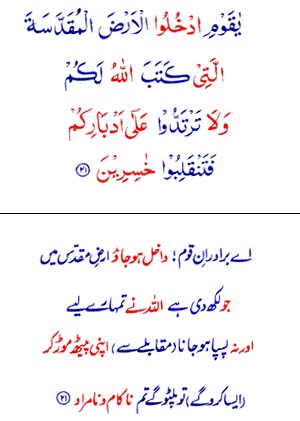 یٰقَوْمِ ادْخُلُوا الْاَرْضَ الْمُقَدَّسَةَ
الَّتِیْ كَتَبَ اللّٰهُ لَكُمْ
وَلَا تَرْتَدُّوْا عَلٰۤی اَدْبَارِكُمْ
فَتَنْقَلِبُوْا خٰسِرِیْنَ ﴿۲۱﴾
اے برادرانِ قوم! داخل ہو جاؤ ارضِ مقدّس میں
جو لکھ دی ہے اللہ نے تمہارے لیے
اور نہ پسپا ہو جانا (مقابلے سے) اپنی پیٹھ موڑ کر
(ایسا کرو گے) تو پلٹو گے تم ناکام و نامراد ﴿۲۱﴾